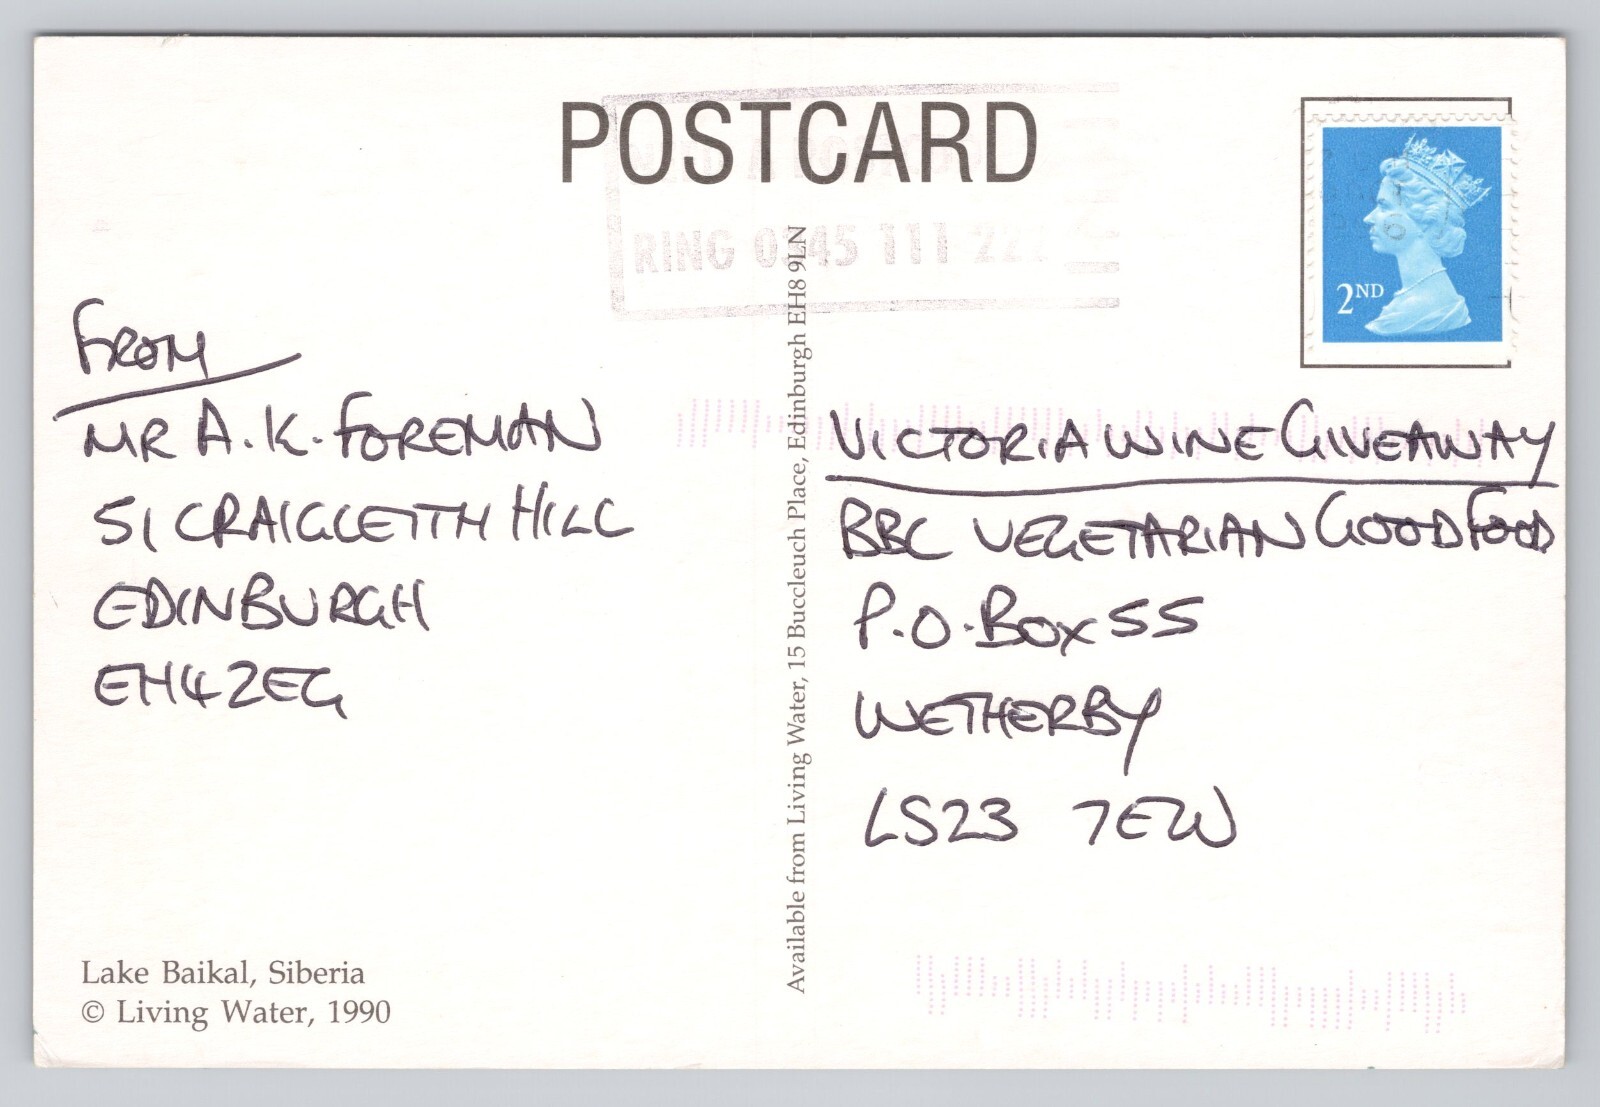 POSTCARD
RING 0345 111 222
2ND
FROM
MR A.K. FOREMAN
51 CRAIGLEITH HILL
EDINBURGH
EH4 2EG
Available from Living Water, 15 Buccleuch Place, Edinburgh EH8 9LN
VICTORIA WINE GIVEAWAY
BBC VEGETARIAN GOOD FOOD
P.O. BOX 55
WETHERBY
LS23 7EW
Lake Baikal, Siberia
© Living Water, 1990